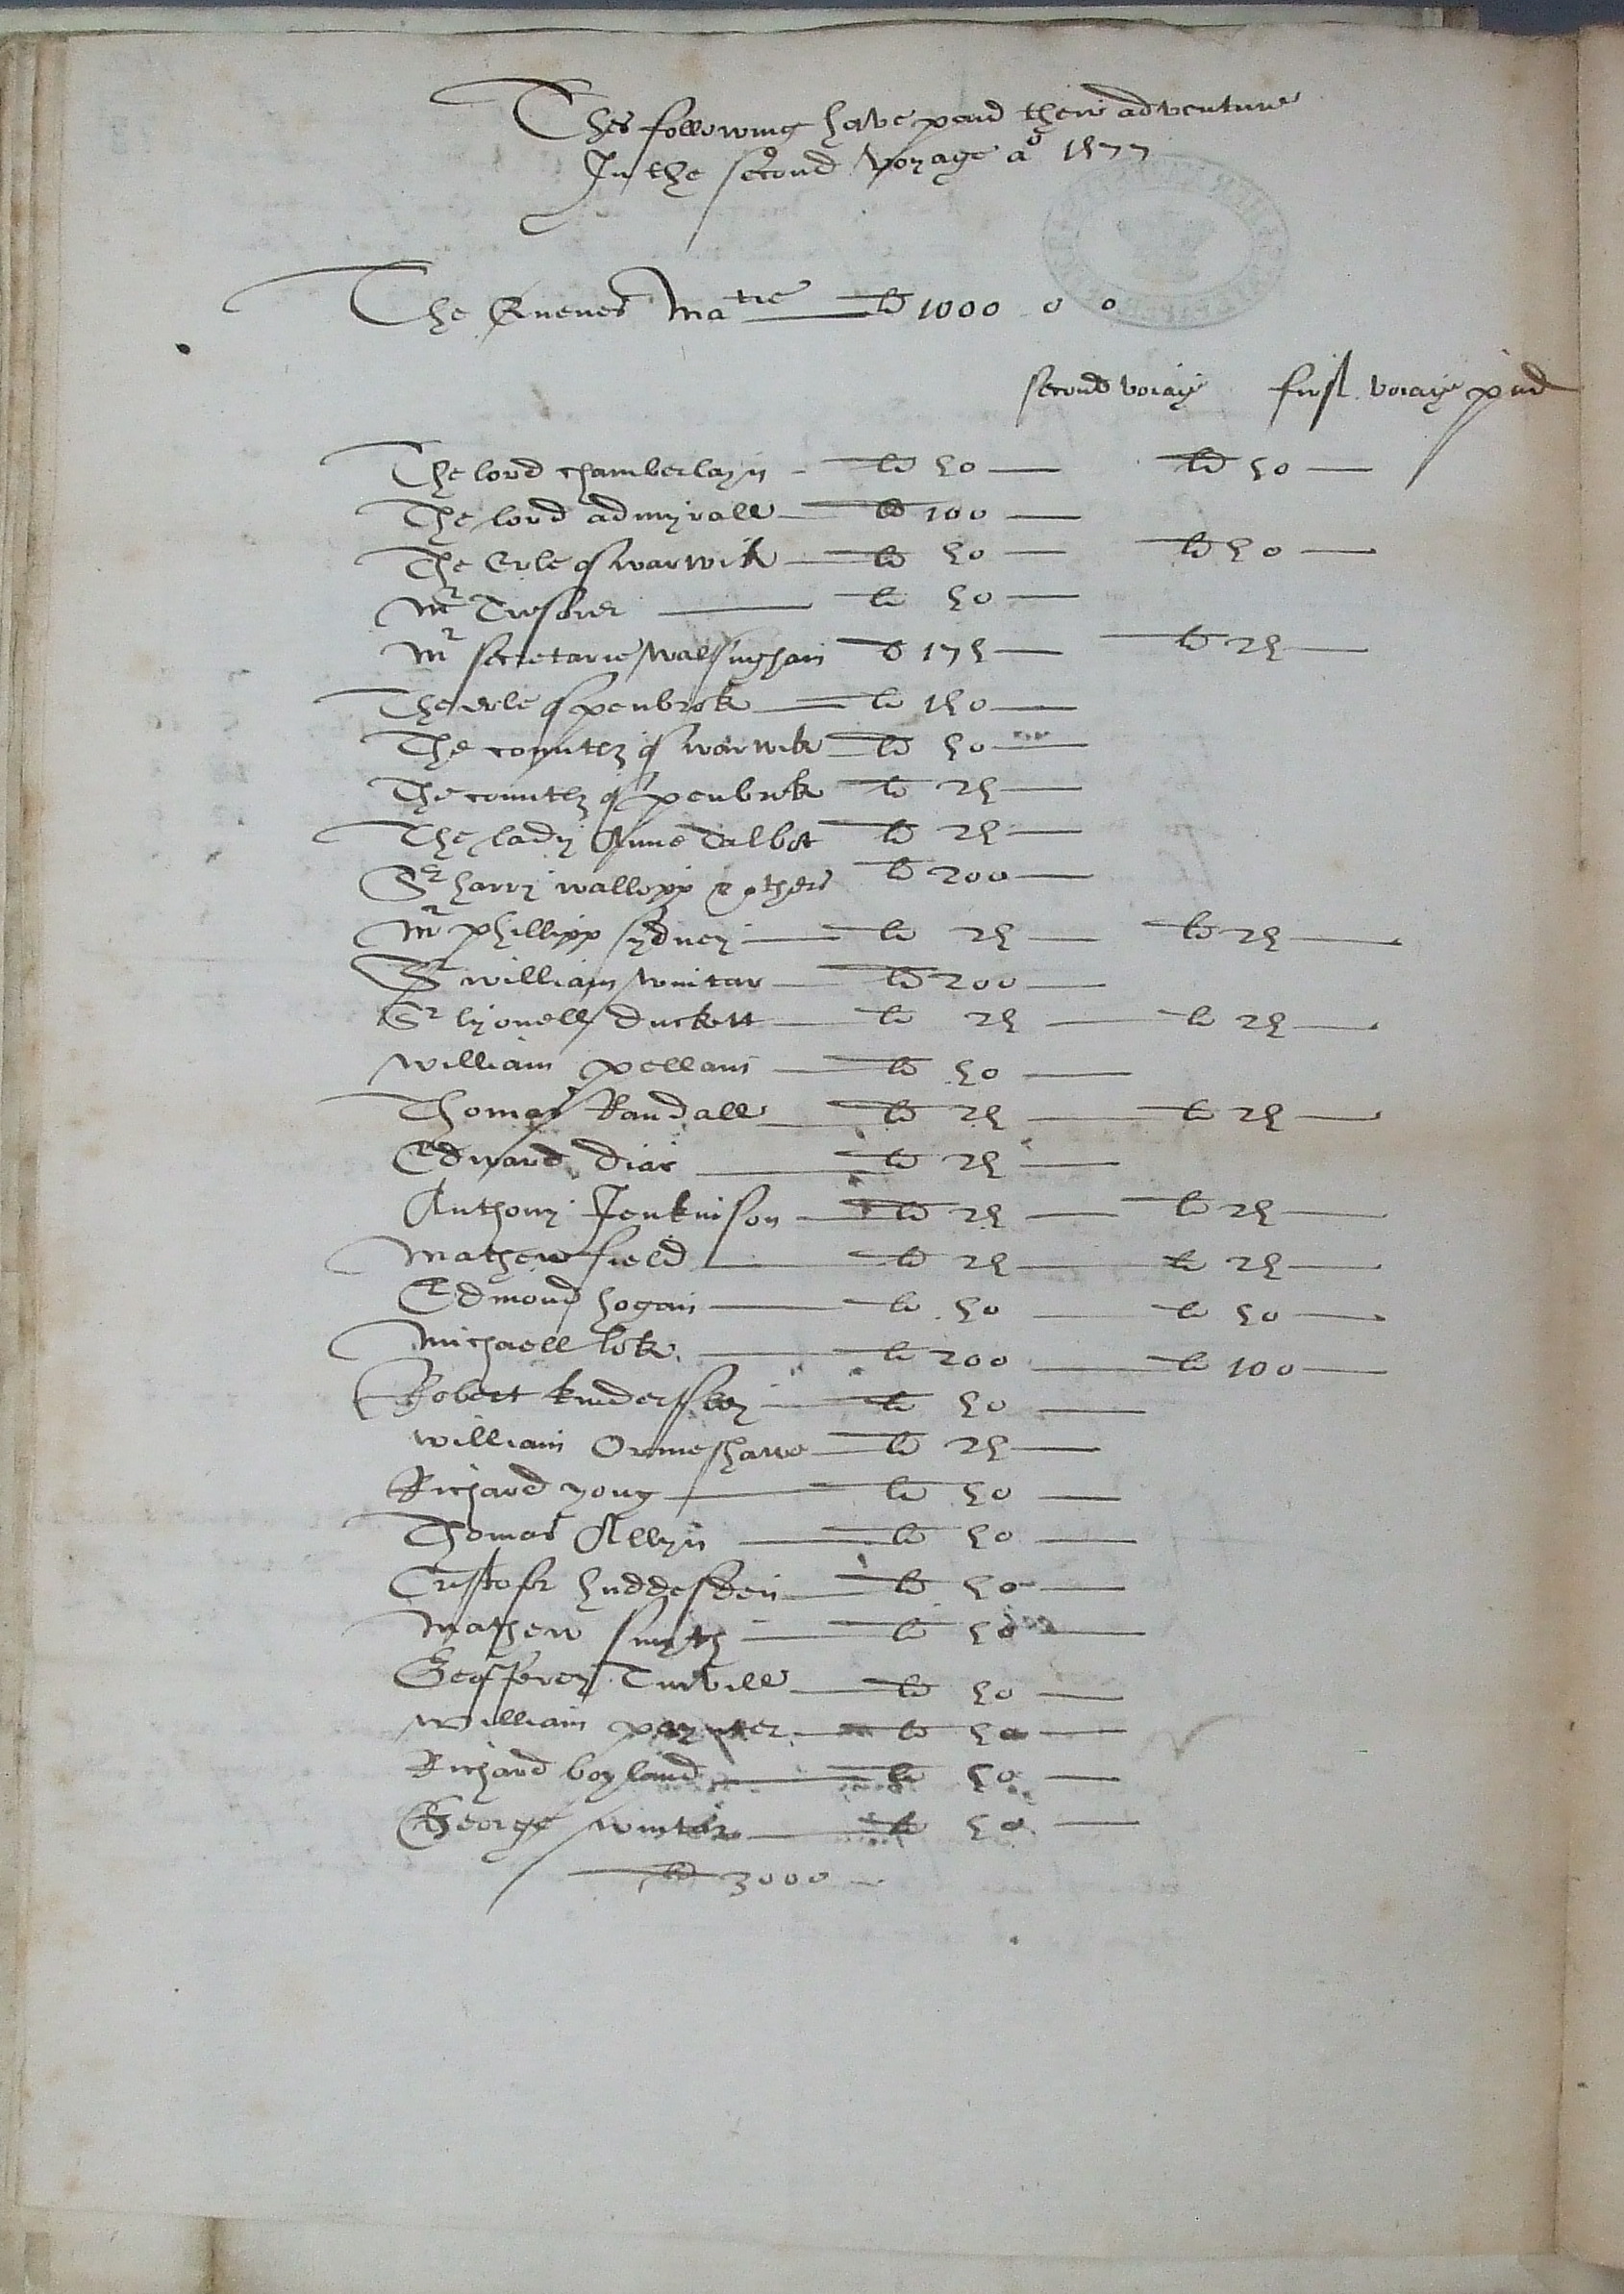 Thes following have paid their adventure
In the second voyage aº 1577
The Quenes Ma^tie li 1000 0 0
second voiage first voiage paid
The lord chamberlayn li 50 li 50
The lord admyrall li 100
The Erle of warwik li 50 li 50
M^r Tresorer li 50
M^r secretarie walsingham li 175 li 25
The erle of penbrok li 150
The countes of warwik li 50
The countes of penbrok li 25
The lady Anne Talbot li 25
S^r harry wallopp & others li 200
M^r phillipp sydney li 25 li 25
S^r william wintar li 200
S^r lyonell duckett li 25 li 25
william pellam li 50
Thomas Randall li 25 li 25
Edward diar li 25
Anthony Jenkinson li 25 li 25
Mathew field li 25 li 25
Edmond hogan li 50 li 50
Michaell lok li 200 li 100
Robert kindersley li 50
william Ormeshawe li 25
Richard yong li 50
Thomas Allyn li 50
Cristofer huddesden li 50
Mathew smyth li 50
Geoffrey Turvill li 50
william paynter li 50
Richard boyland li 50
George wintar li 50
li 3000